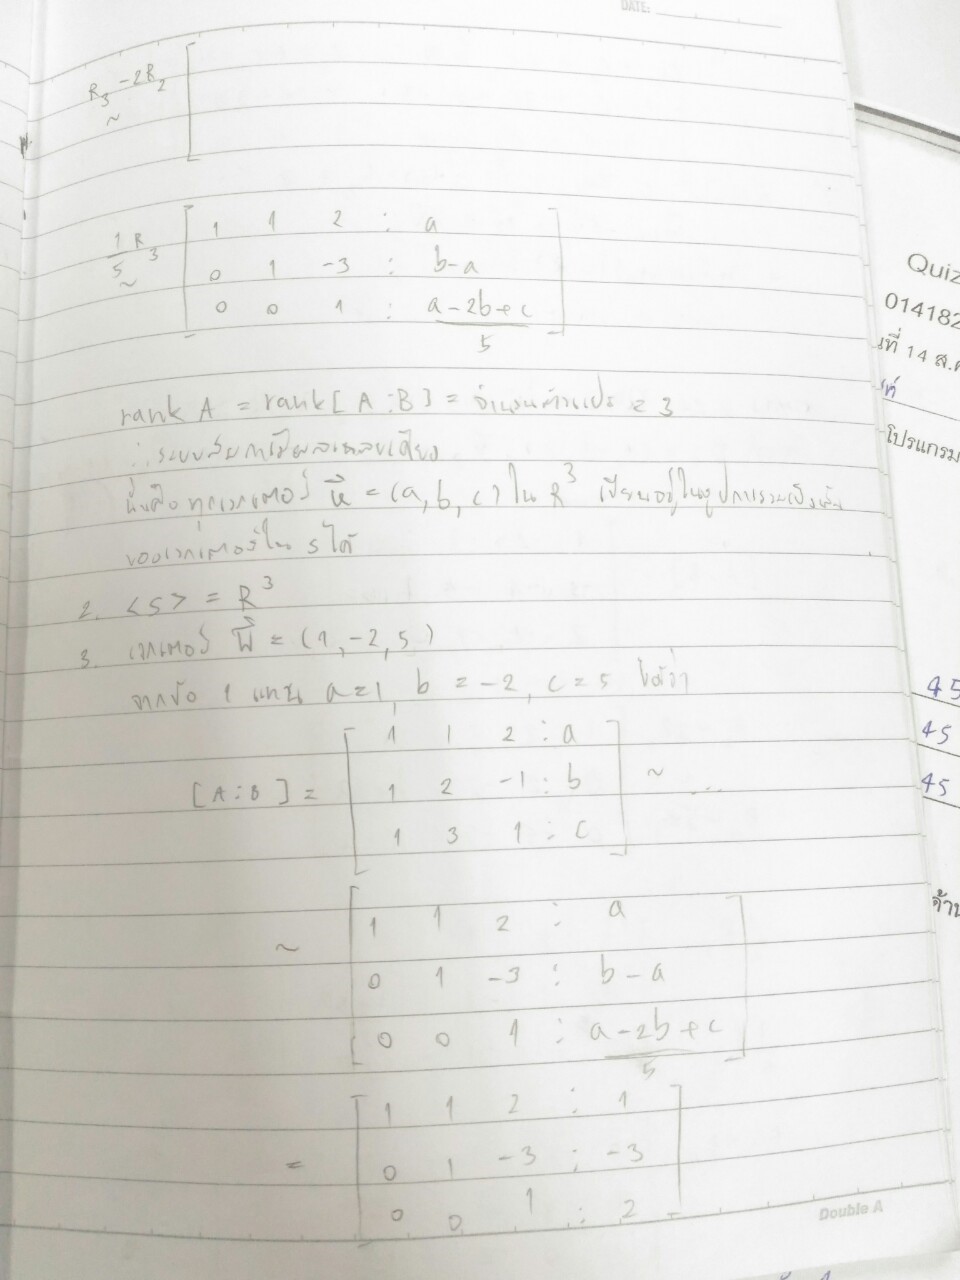 DATE:
R₃ -2R₂
~
1/5 R₃ ~
1 1 2 : a
0 1 -3 : b-a
0 0 1 : a-2b+c
5
rank A = rank[A:B] = จำนวนตัวแปร = 3
∴ ระบบสมการมีผลเฉลยเดียว
นั่นคือ ทุกเวกเตอร์ u = (a, b, c) ใน R³ เขียนอยู่ในรูปการรวมเชิงเส้น
ของเวกเตอร์ใน S ได้
2. <S> = R³
3. เวกเตอร์ = (1, -2, 5)
จากข้อ 1 แทน a=1, b = -2, c = 5 ได้ว่า
1 1 2 : a
[A:B] = 1 2 -1 : b ~ ...
1 3 1 : c
1 1 2 : a
~ 0 1 -3 : b-a
0 0 1 : a-2b+c
5
1 1 2 : 1
= 0 1 -3 : -3
0 0 1 : 2
Double A
Quiz
014182
นที่ 14 ส.ค
โปรแกรม
45
45
45
ด้าน